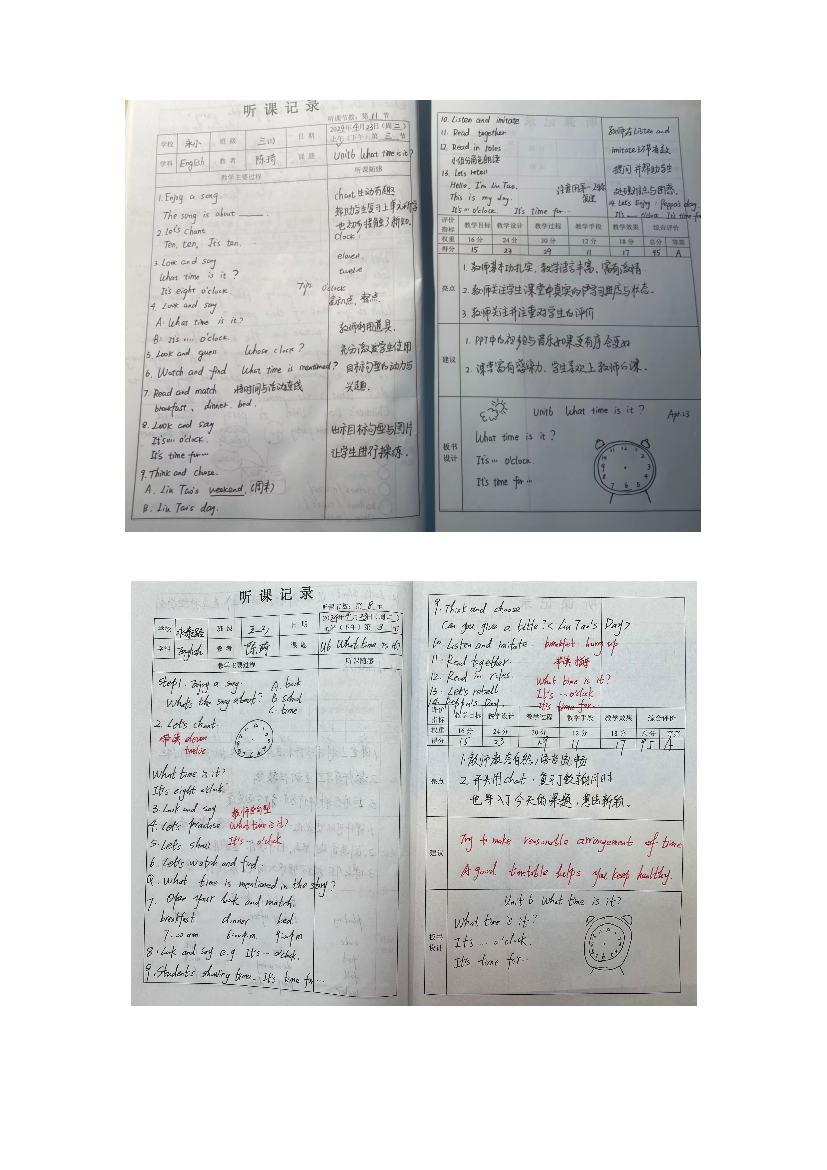 听课记录
听课节数：第 11 节
学校 永小 班级 三(1) 日期 2024年4月23日(周二)
上午(下午)第 三 节
学科 English 教者 陈琦 课题 Unit6 What time is it?
教学主要过程 听课随感
1. Enjoy a song.
The song is about ______.
2. Let's chant
Ten, ten, It's ten. ...
3. Look and say
What time is it?
It's eight o'clock.
4. Look and say
A: What time is it?
B: It's ... o'clock.
5. Look and guess Whose clock?
6. Watch and find What time is mentioned?
7. Read and match 将时间与活动连线
breakfast、dinner. bed.
8. Look and say
It's... o'clock.
It's time for...
9. Think and chose.
A. Liu Tao's weekend.(周末)
B. Liu Tao's day.
chant生动有趣
clock!
eleven
twelve
Tip: o'clock
教师利用道具，
充分激发学生使用
目标句型的动力与
兴趣。
出示目标句型与图片
让学生进行操练。
10. Listen and imitate
11. Read together
12. Read in roles
小组分角色朗读
13. Let's retell
Hello, I'm Liu Tao.
This is my day.
It's ... o'clock. It's time for...
教师在Listen and
imitate环节
提问并帮助学生
14. Let's Enjoy: Peppa's day.
It's ... o'clock It's time for
评价指标 教学目标 教学设计 教学过程 教学手段 教学效果 综合评价
权重 16分 24分 30分 12分 18分 总分 等第
得分 15 23 29 11 17 95 A
亮点
1. 教师基本功扎实，教学语言丰富、富有激情.
2. 教师关注学生课堂中真实的学习进度与状态.
3. 教师关注并注重对学生的评价
建议
1. PPT中的视频与音乐如果更有序会更好
2. 课堂富有感染力，学生喜欢上教师的课.
板书设计
Unit6 What time is it? Apr.23
What time is it?
It's ... o'clock.
It's time for ...
12 1 2 3 4 5 6 7 8 9 10 11
听课记录
听课节数：第 8 节
班级 三(1) 日期 2024年4月23日(周二)
(下午)第 3 节
English 教者 陈琦 课题 U6 What time is it?
教学主要过程 听课随感
Step1. Enjoy a song. A. book
What's the song about? B. school
C. time
2. Let's chant.
eleven
twelve
What time is it?
It's eight o'clock
3. Look and say
4. Let's practise What time is it?
5. Let's show It's ... o'clock
6. Let's watch and find.
Q: What time is mentioned in the story?
7. Open your book and match.
breakfast dinner bed
8. Look and say e.g. It's ... o'clock.
9. Students showing time. It's time for ...
9. Think and choose
Can you give a title? < Liu Tao's Day >
10. Listen and imitate breakfast hurry up
11. Read together.
12. Read in roles. What time is it?
13. Let's retell It's ... o'clock
14. Peppa's Day. It's time for...
评价指标 教学目标 教学设计 教学过程 教学手段 教学效果 综合评价
权重 16分 24分 30分 12分 18分 总分 等第
得分 15 23 29 11 17 95 A
亮点
1. 教师教态自然，语言流畅
2. 开头用chant，复习了数字的同时
也导入了今天的课题，突出新颖。
建议
Try to make reasonable arrangement of time
A good timetable helps you keep healthy.
板书设计
Unit 6 What time is it?
What time is it?
It's ... o'clock.
It's time for...